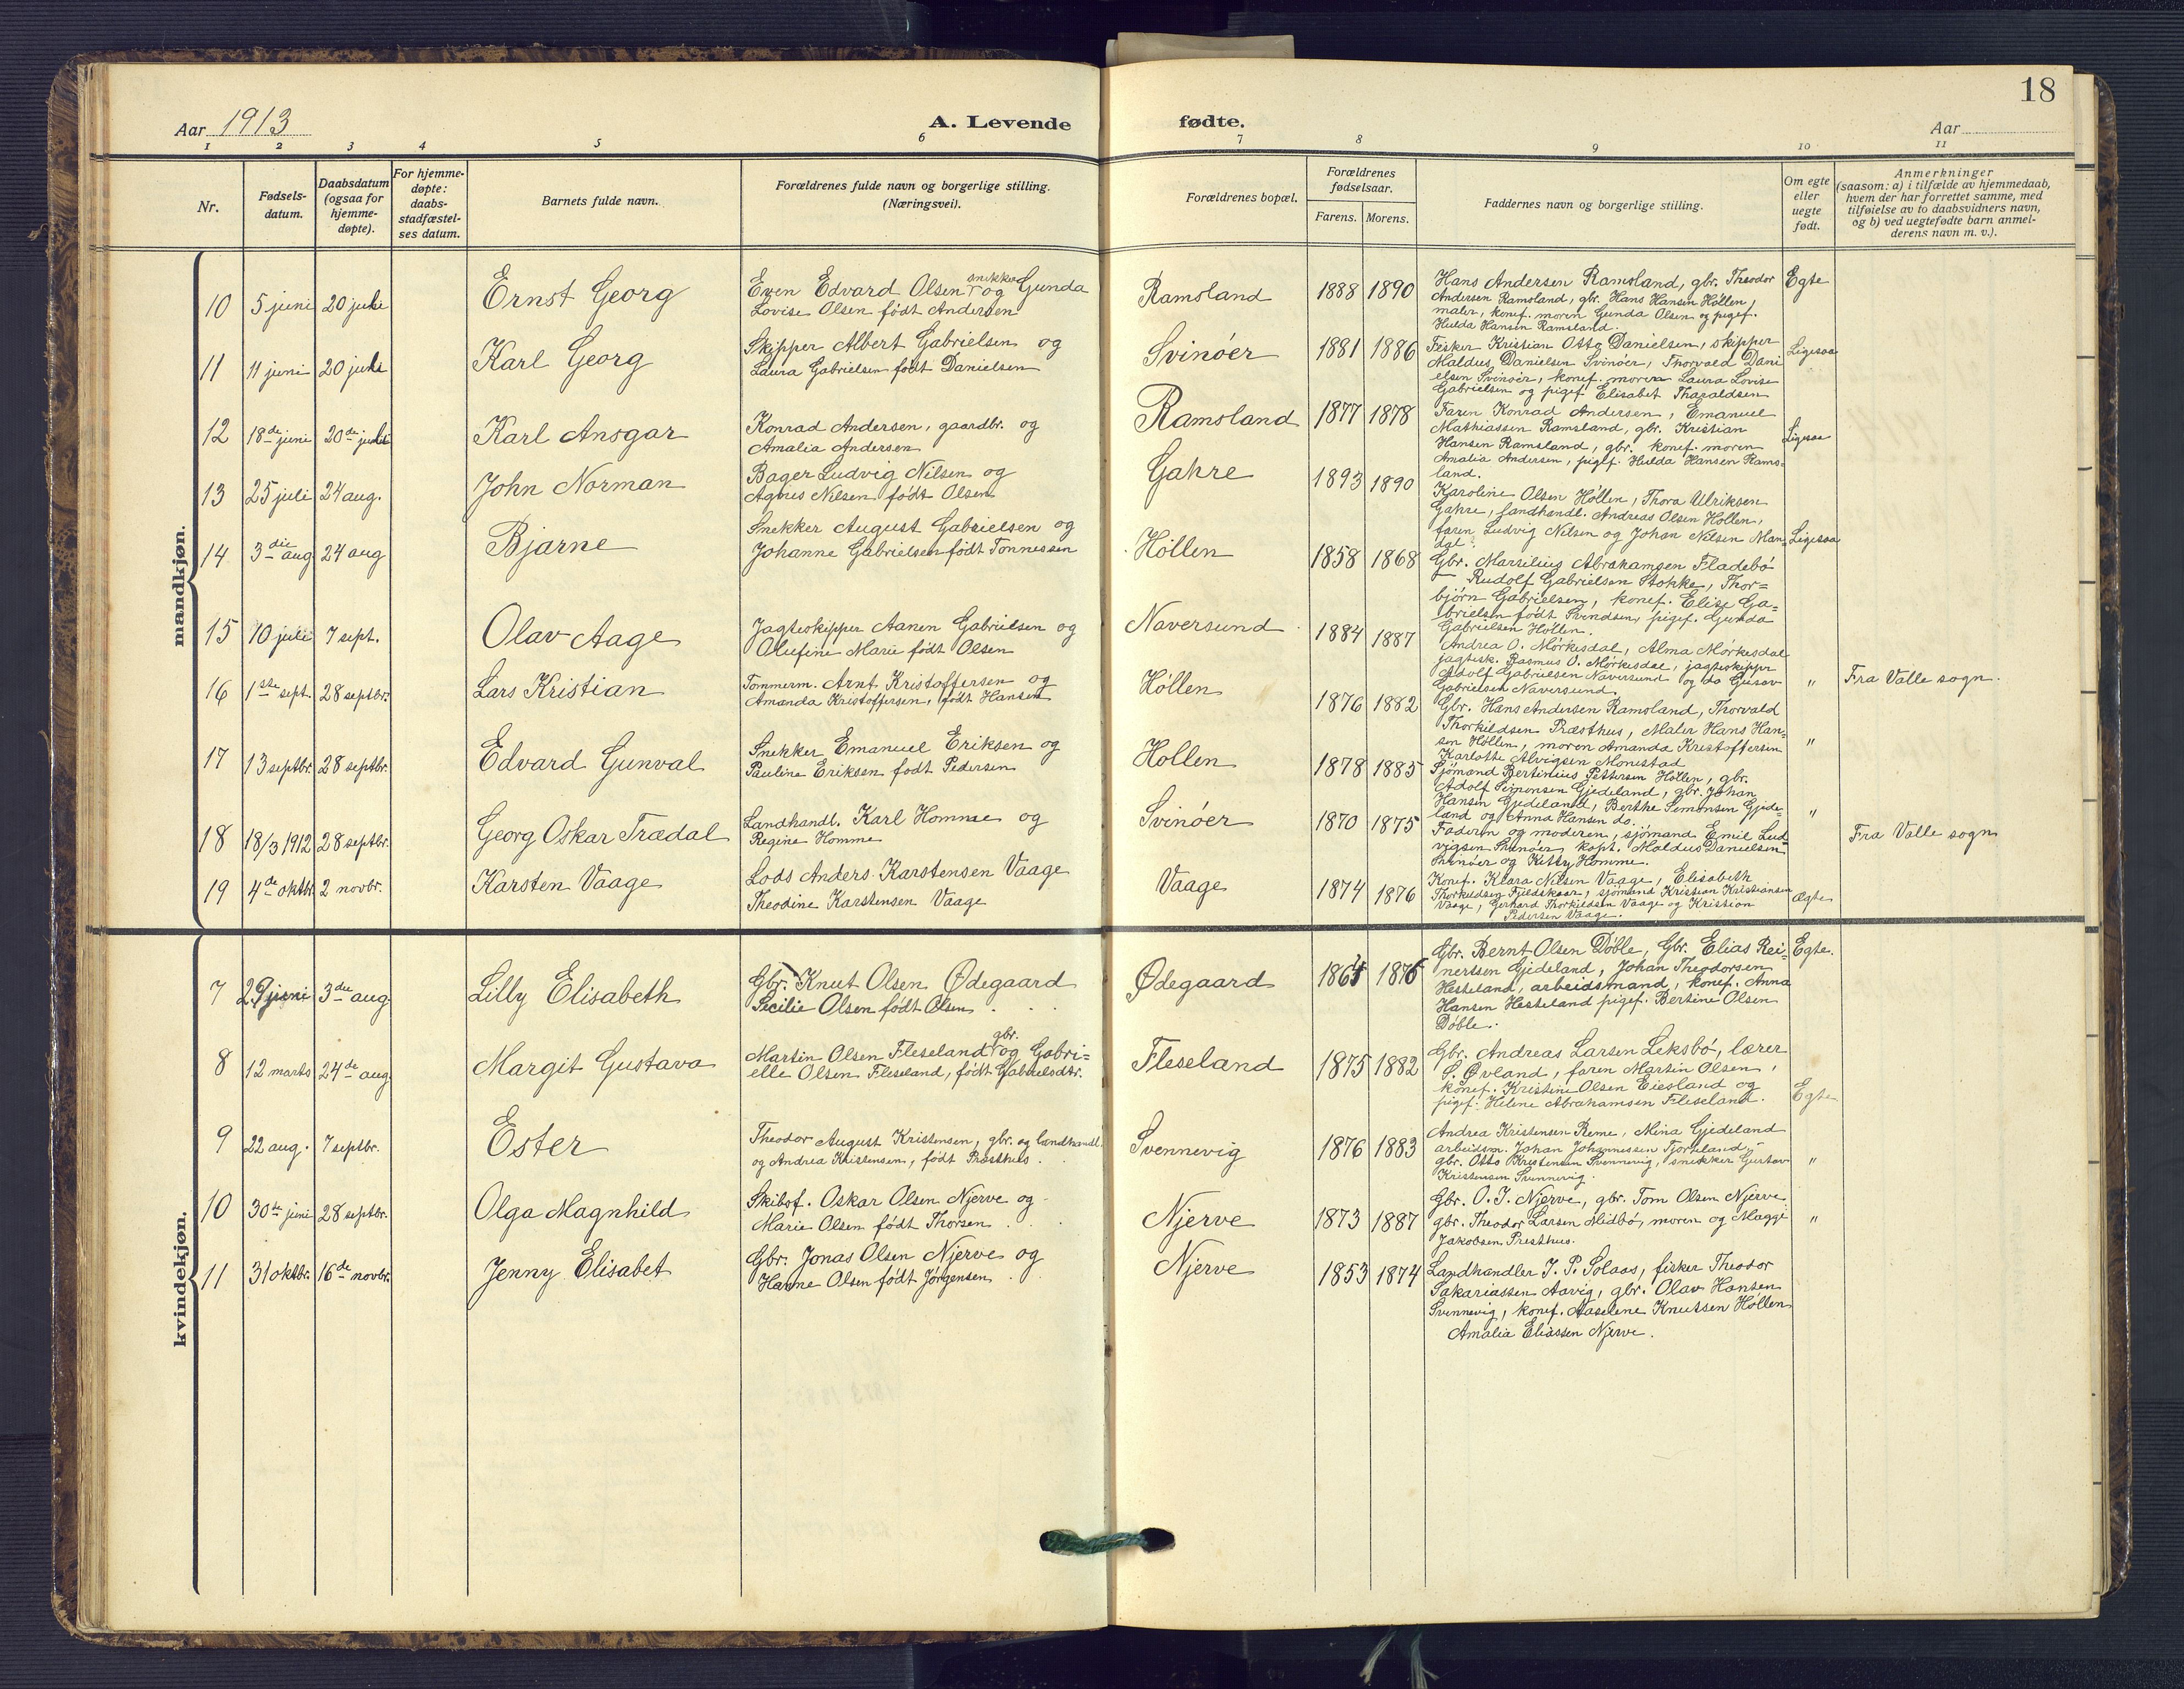 18
Aar 1913
A. Levende fødte.
Aar
1 2 3 4 5 6 7 8 9 10 11
Nr.
Fødsels-
datum.
Daabsdatum
(ogsaa for
hjemme-
døpte).
For hjemme-
døpte:
daabs-
stadfæstel-
ses datum.
Barnets fulde navn.
Forældrenes fulde navn og borgerlige stilling.
(Næringsvei).
Forældrenes bopæl.
Forældrenes
fødselsaar.
Farens. Morens.
Faddernes navn og borgerlige stilling.
Om egte
eller
uegte
født.
Anmerkninger
(saasom: a) i tilfælde av hjemmedaab,
hvem der har forrettet samme, med
tilføielse av to daabsvidners navn,
og b) ved uegtefødte barn anmel-
derens navn m. v.).
mandkjøn.
10 5 juni 20 juli Ernst Georg
Even Edvard Olsen snekker og Gunda
Lovise Olsen født Andersen
Ramsland 1888 1890
Hans Andersen Ramsland, gbr. Theodor
Andersen Ramsland, gbr. Hans Hansen Høllen,
maler, konef. moren Gunda Olsen og pigef.
Hulda Hansen Ramsland.
Egte
11 11 juni 20 juli Karl Georg
Skipper Albert Gabrielsen og
Laura Gabrielsen født Danielsen
Svinöer 1881 1886
Fisker Kristian Otto Danielsen, skipper
Maldus Danielsen Svinöer, Thorvald Dani
elsen Svinöer, konef. moren Laura Lovise
Gabrielsen og pigef. Elisabet Tharaldsen
Ligesaa
12 18de juni 20de juli Karl Ansgar
Konrad Andersen, gaardbr. og
Amalia Andersen
Ramsland 1877 1878
Faren Konrad Andersen, Emanuel
Mathiassen Ramsland, gbr. Kristian
Hansen Ramsland, gbr. konef. moren
Amalia Andersen, pigef. Hulda Hansen Rams=
land.
Ligesaa
13 25 juli 24 aug. John Norman
Bager Ludvig Nilsen og
Agnes Nilsen født Olsen
Gahre 1893 1890
Karoline Olsen Höllen, Thora Ulriksen
Gahre, landhandl. Andreas Olsen Höllen,
faren Ludvig Nilsen og Johan Nilsen Man=
dal.
Ligesaa
14 3die aug 24 aug Bjarne
Snekker August Gabrielsen og
Johanne Gabrielsen født Tønnessen
Höllen 1858 1868
Gbr. Marselius Abrahamsen Fladebö
Rudolf Gabrielsen Stokke, Thor=
bjørn Gabrielsen, konef. Elise Ga=
brielsen født Svindsen, pigef. Gunda
Gabrielsen Höllen.
15 10 juli 7 sept. Olav Aage
Jagtskipper Aanen Gabrielsen og
Olufine Marie født Olsen
Naversund 1884 1887
Andrea O. Mörkesdal, Alma Mörkesdal
jagtsk. Rasmus O. Mörkesdal, jagtskipper
Adolf Gabrielsen Naversund og do Gustav
Gabrielsen Naversund.
16 1ste sept. 28 septbr. Lars Kristian
Tømmerm. Arnt Kristoffersen og
Amanda Kristoffersen, født Hansen
Höllen 1876 1882
Gbr. Hans Andersen Ramsland, Thorvald
Thorkildsen Præsthus, Maler Hans Han=
sen Höllen, moren Amanda Kristoffersen
Karlotte Alvigsen Monestad
"
Fra Valle sogn.
17 13 septbr. 28 septbr. Edvard Gunval
Snekker Emanuel Eriksen og
Pauline Eriksen født Pedersen
Höllen 1878 1885
Sjömand Bertinius Pettersen Höllen, gbr.
Adolf Simonsen Gjedeland, gbr. Johan
Hansen Gjedeland, Berthe Simonsen Gjede-
land og Anna Hansen do.
"
18 18/3 1912 28 septbr. Georg Oskar Trædal
Landhandl. Karl Homme og
Regine Homme
Svinöer 1870 1875
Faderen og moderen, sjömand Emil Lud
vigsen Svinöer kapt. Maldus Danielsen
Svinöer og Kitty Homme.
"
Fra Valle sogn
19 4de oktbr. 2 novbr. Karsten Vaage
Lods Anders Karstensen Vaage
Theodine Karstensen Vaage
Vaage 1874 1876
Konef. Klara Nilsen Vaage, Elisabeth
Thorkildsen Fjeldskaar, sjömand Kristian Kristiansen
Vaage, Gerhard Thorkildsen Vaage og Kristian
Pedersen Vaage.
Ægte
kvindekjøn.
7 29 juni 3die aug. Lilly Elisabeth
Gbr. Knut Olsen Ødegaard
Secilie Olsen født Olsen
Ødegaard 1876
Gbr. Bernt Olsen Döble, Gbr. Elias Rei=
nertsen Gjedeland, Johan Theodorsen
Hesteland, arbeidsmand, konef. Anna
Hansen Hesteland pigef. Bertine Olsen
Döble.
Egte.
8 12 marts 24de aug. Margit Gustava
Martin Olsen Fleseland gbr. og Gabri=
elle Olsen Fleseland, født Gabrielsdtr.
Fleseland 1875 1882
Gbr. Andreas Larsen Leksbö, lærer
S. Øvland, faren Martin Olsen,
konef. Kristine Olsen Eiesland og
pigef. Helene Abrahamsen Fleseland.
Egte
9 22 aug. 7 septbr. Ester
Theodor August Kristensen, gbr. og landhandl.
og Andrea Kristensen, født Præsthus.
Svennevig 1876 1883
Andrea Kristensen Reme, Mina Gjedeland
arbeidsm. Johan Johannessen Tjomeland,
gbr. Otto Kristensen Svennevig, snekker Gustav
Kristensen Svennevig.
"
10 30te juni 28 septbr. Olga Magnhild
Skibsf. Oskar Olsen Njerve og
Marie Olsen født Thorsen
Njerve 1873 1887
Gbr. O. J. Njerve, gbr. Tom Olsen Njerve
gbr. Theodor Larsen Midbö, moren og Maggi
Jakobsen Presthus.
"
11 31 oktbr. 16de novbr. Jenny Elisabet
Gbr. Jonas Olsen Njerve og
Hanne Olsen født Jörgensen
Njerve 1853 1874
Landhandler J. P. Solaas, fisker Theodor
Sakariassen Aavig, gbr. Olav Hansen
Svennevig, konef. Aaselene Knutsen Höllen
Amalia Eliassen Njerve.